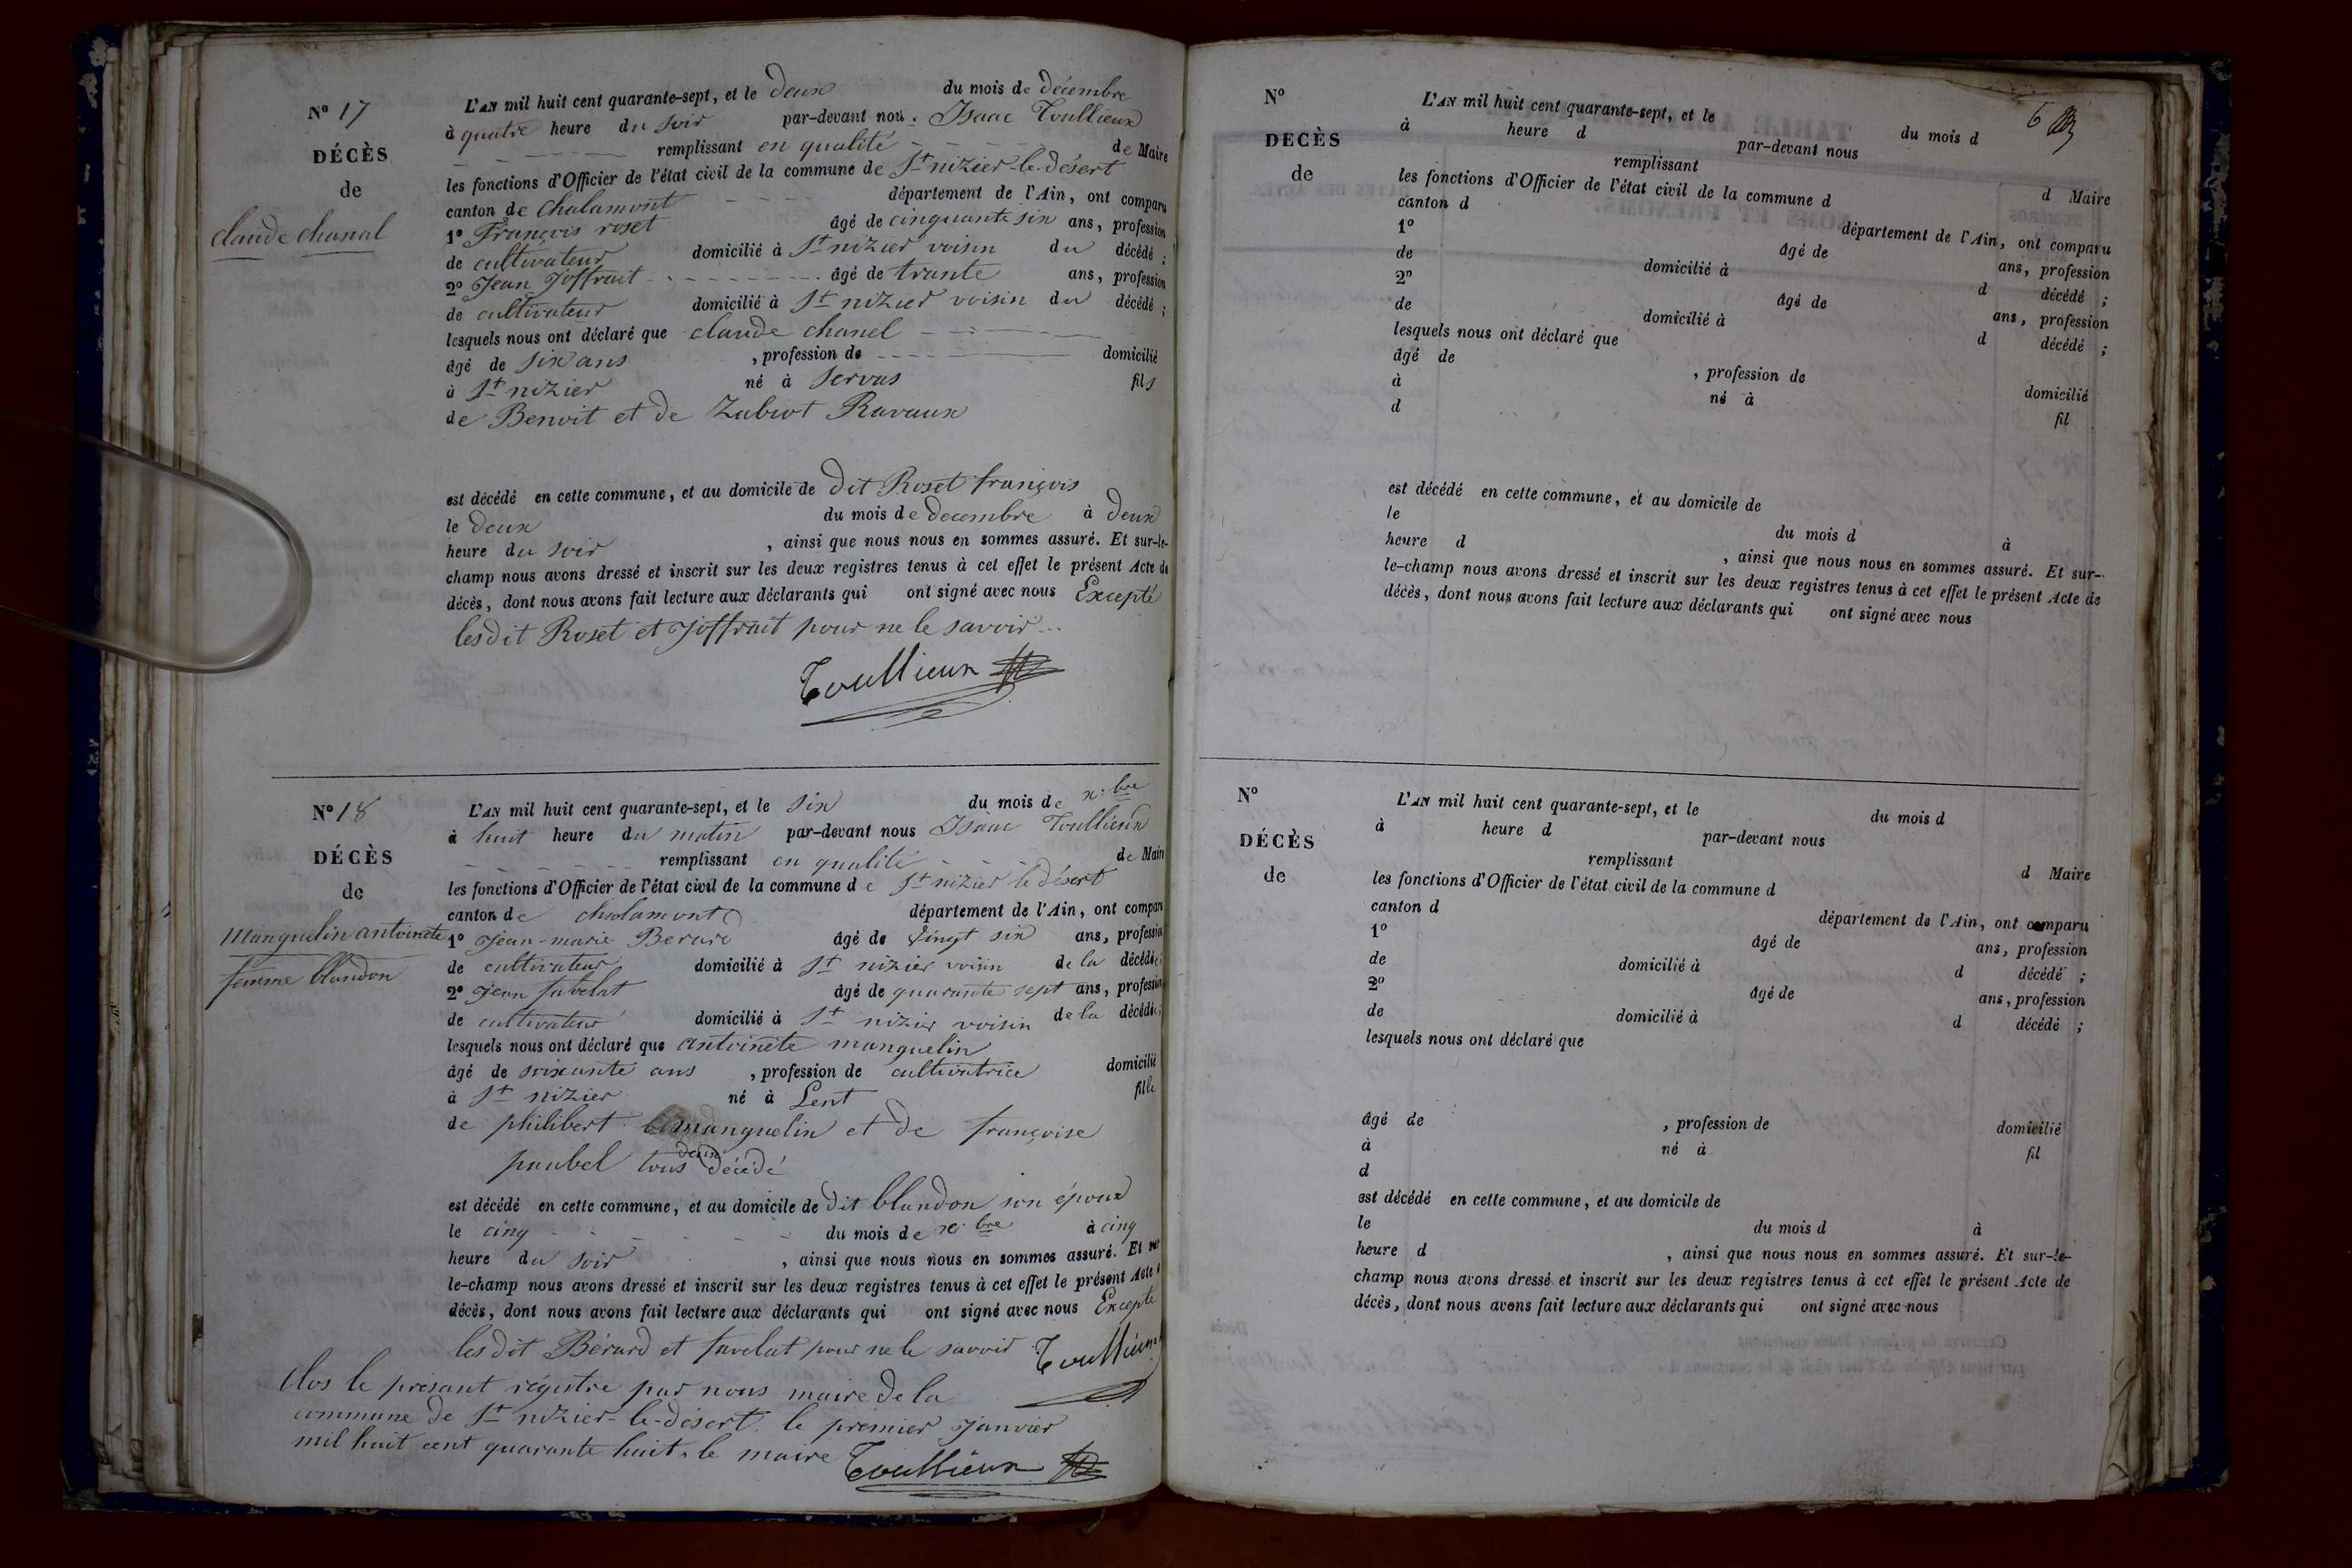 N° 17
DÉCÈS
de
claude chanal
L'AN mil huit cent quarante-sept, et le deux du mois de décembre
à quatre heure du soir par-devant nou. Isaac Toullieux
remplissant en qualité de Maire
les fonctions d'Officier de l'état civil de la commune de St nizier-le-désert
canton de chalamont département de l'Ain, ont comparu
1° François roset âgé de cinquante six ans, profession
de cultivateur domicilié à St nizier voisin du décédé ;
2° Jean Joffrait âgé de trante ans, profession
de cultivateur domicilié à St nizier voisin du décédé ;
lesquels nous ont déclaré que claude chanel
âgé de six ans , profession de domicilié
à St nizier né à Servas fils
de Benoit et de Zubiot Ravaux
est décédé en cette commune, et au domicile de dit Roset françois
le deux du mois de decembre à deux
heure du soir , ainsi que nous nous en sommes assuré. Et sur-le-
champ nous avons dressé et inscrit sur les deux registres tenus à cet effet le présent Acte de
décès, dont nous avons fait lecture aux déclarants qui ont signé avec nous Excepté
lesdit Roset et Joffrait pour ne le savoir
Toullieux
N° 18
DÉCÈS
de
Manguelin antoinete
femme blandon
L'AN mil huit cent quarante-sept, et le six du mois de x.bre
à huit heure du matin par-devant nous Isaac Toullieux
remplissant en qualité de Maire
les fonctions d'Officier de l'état civil de la commune de St nizier le désert
canton de chalamont département de l'Ain, ont comparu
1° Jean-marie Berard âgé de vingt six ans, profession
de cultivateur domicilié à St nizier voisin de la décédée;
2° Jean favelat âgé de quarante sept ans, profession
de cultivateur domicilié à St nizier voisin de la décédée;
lesquels nous ont déclaré que antoinete manguelin
âgé de soixante ans , profession de cultivatrice domicilié
à St nizier né à Lent fille
de philibert manguelin et de françoise
paubel tous deux décédé
est décédé en cette commune, et au domicile de dit blandon son époux
le cinq du mois de x.bre à cinq
heure du soir , ainsi que nous nous en sommes assuré. Et sur
le-champ nous avons dressé et inscrit sur les deux registres tenus à cet effet le présent Acte
décès, dont nous avons fait lecture aux déclarants qui ont signé avec nous Excepté
lesdit Bérard et favelat pour ne le savoir Toullieux
Clos le présant régistre par nous maire de la
commune de St nizier-le-désert. le premier Janvier
mil huit cent quarante huit. le maire Toullieux
6
N°
DÉCÈS
de
L'AN mil huit cent quarante-sept, et le du mois d
à heure d par-devant nous
remplissant d Maire
les fonctions d'Officier de l'état civil de la commune d
canton d département de l'Ain, ont comparu
1° âgé de ans, profession
de domicilié à d décédé ;
2° âgé de ans, profession
de domicilié à d décédé ;
lesquels nous ont déclaré que
âgé de , profession de domicilié
à né à fil
d
est décédé en cette commune, et au domicile de
le du mois d à
heure d , ainsi que nous nous en sommes assuré. Et sur-
le-champ nous avons dressé et inscrit sur les deux registres tenus à cet effet le présent Acte de
décès, dont nous avons fait lecture aux déclarants qui ont signé avec nous
N°
DÉCÈS
de
L'AN mil huit cent quarante-sept, et le du mois d
à heure d par-devant nous
remplissant d Maire
les fonctions d'Officier de l'état civil de la commune d
canton d département de l'Ain, ont comparu
1° âgé de ans, profession
de domicilié à d décédé ;
2° âgé de ans, profession
de domicilié à d décédé ;
lesquels nous ont déclaré que
âgé de , profession de domicilié
à né à fil
d
est décédé en cette commune, et au domicile de
le du mois d à
heure d , ainsi que nous nous en sommes assuré. Et sur-le-
champ nous avons dressé et inscrit sur les deux registres tenus à cet effet le présent Acte de
décès, dont nous avons fait lecture aux déclarants qui ont signé avec nous